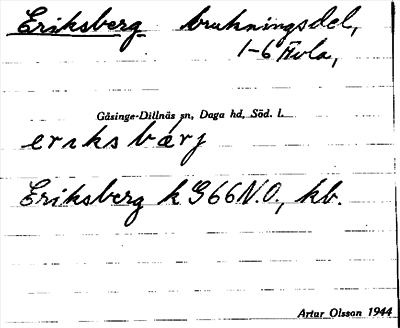 Eriksberg brukningsdel,
1-6 Åvla,
Gåsinge-Dillnäs sn, Daga hd, Söd. l.
eriksbærj
Eriksberg k G66 N.O., kb.
Artur Olsson 1944